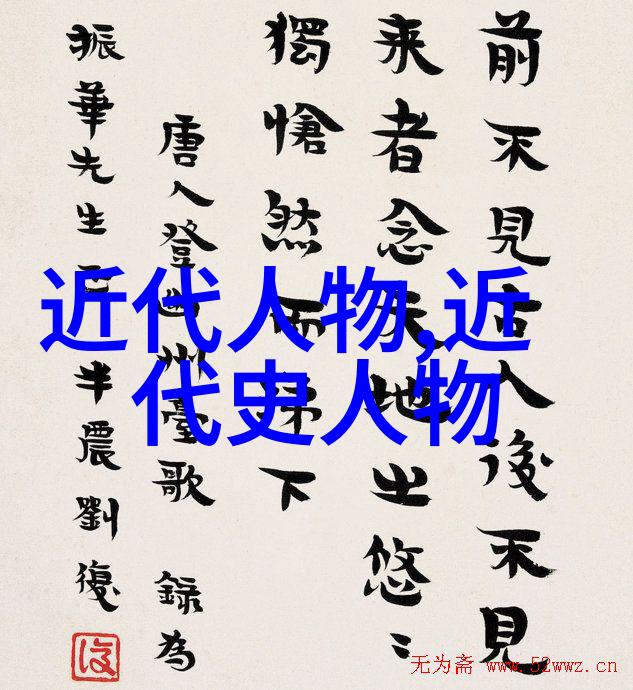 前不見古人後不見
来者念天地之悠〻
獨愴然而涕下
唐人登幽州臺歌 錄為
振華先生正 半農劉復
復
近代人物,近
代史人物
无为斋 www.52wwz.cn